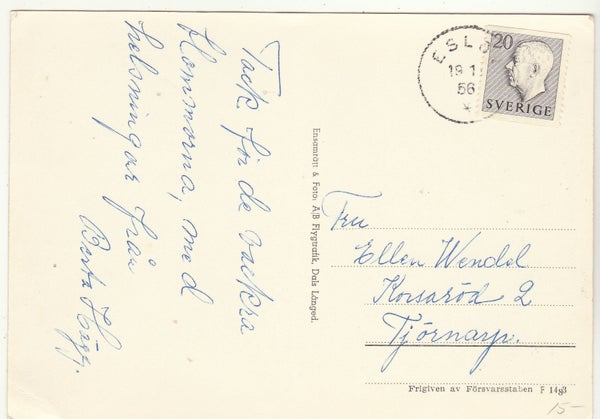 Tack för de vackra
blommorna, med
helsningar från
Berta Hägg.
Ensamrätt & Foto: A/B Flygtrafik, Dals Långed.
ESLÖ
19 1
56
20
SVERIGE
Fru
Ellen Wendel
Korsaröd 2
Tjörnarp.
Frigiven av Försvarsstaben
15-